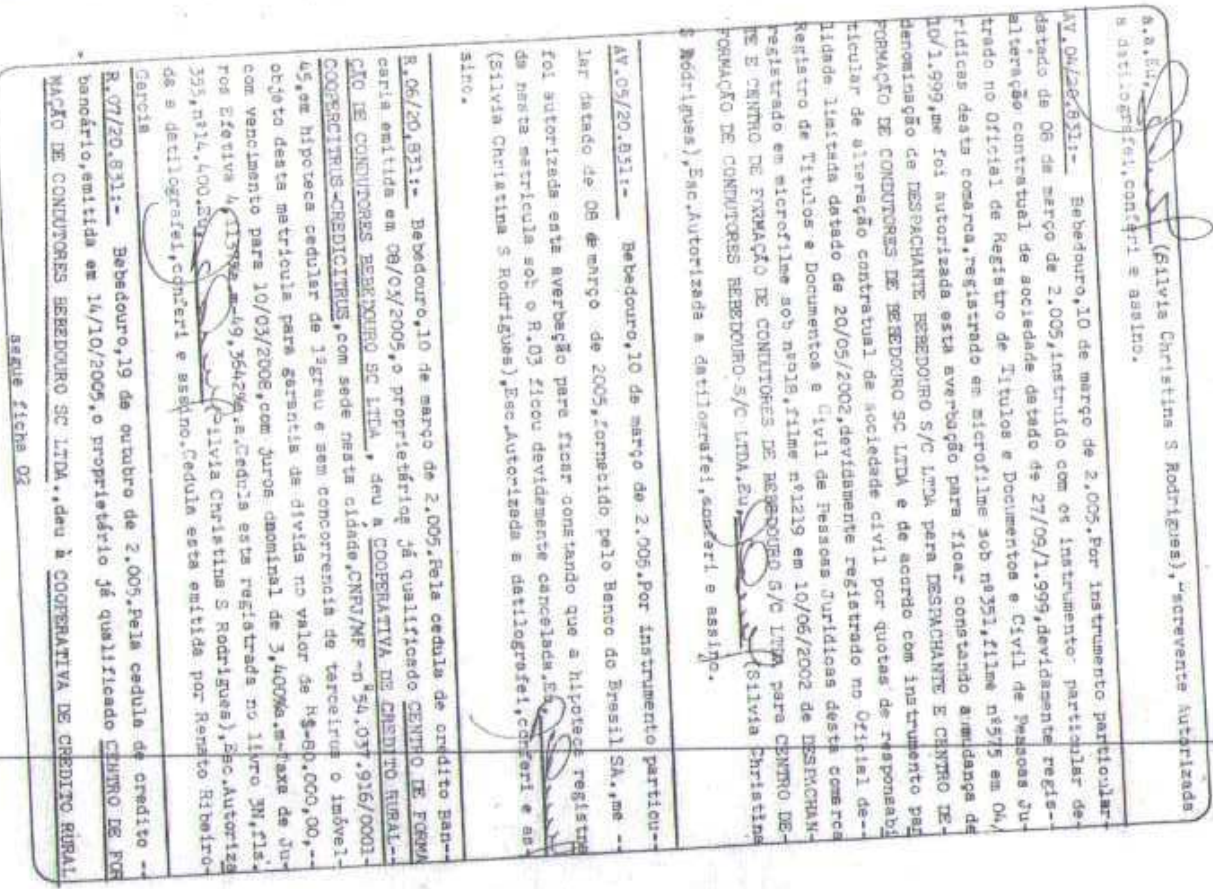 a.a.Eu, (Silvia Christina S Rodrigues),"screvente Autorizada
a datilografei,conferi e assino.
AV.04/20.831:- Bebedouro,10 de março de 2.005.Por instrumento particular-
datado de 08 de março de 2.005,instruido com os instrumento particular de-
alteração contratual de sociedade datado de 27/09/1.999,devidamente regis--
trado no Oficial de Registro de Titulos e Documentos e Civil de Pessoas Ju-
ridicas desta comarca,registrado em microfilme sob nº351,filme nº515 em 04/
10/1.999,me foi autorizada esta averbação para ficar constando a mudança de
denominação de DESPACHANTE BEBEDOURO S/C LTDA para DESPACHANTE E CENTRO DE-
FORMAÇÃO DE CONDUTORES DE BEBEDOURO SC LTDA e de acordo com instrumento par
ticular de alteração contratual de sociedade civil por quotas de responsabi
lidade limitada datado de 20/05/2002,devidamente registrado no Oficial de--
Registro de Titulos e Documentos e Civil de Pessoas Juridicas desta comarca
registrado em microfilme sob nº018,filme nº1219 em 10/06/2002 de DESPACHAN-
TE E CENTRO DE FORMAÇÃO DE CONDUTORES DE BEBEDOURO S/C LTDA para CENTRO DE-
FORMAÇÃO DE CONDUTORES BEBEDOURO S/C LTDA.Eu, (Silvia Christina
S Rodrigues),Esc.Autorizada a datilografei,conferi e assino.
AV.05/20.831:- Bebedouro,10 de março de 2.005.Por instrumento particu--
lar datado de 08 de março de 2005,fornecido pelo Banco do Brasil SA.,me --
foi autorizada esta averbação para ficar constando que a hipoteca registra
da nesta matricula sob o R.03 ficou devidamente cancelada.Eu,
(Silvia Christina S Rodrigues),Esc.Autorizada a datilografei,conferi e as-
sino.
R.06/20.831:- Bebedouro,10 de março de 2.005.Pela cedula de credito Ban--
caria emitida em 08/03/2005,o proprietário já qualificado CENTRO DE FORMA
ÇÃO DE CONDUTORES BEBEDOURO SC LTDA, deu a COOPERATIVA DE CREDITO RURAL--
COOPERCITRUS-CREDICITRUS,com sede nesta cidade,CNPJ/MF -nº54.037.916/0001-
45,em hipoteca cedular de 1ºgrau e sem concorrencia de terceiros o imóvel-
objeto desta matricula para garantia da divida no valor de R$-80.000,00,--
com vencimento para 10/03/2008,com juros dnominal de 3,400%a.m-Taxa de Ju-
ros Efetiva a.m-49,3642%a.a.Cedula esta registrada no livro 3N,fls.
395,nº14.400.Eu, Silvia Christina S Rodrigues),Esc.Autoriza
da a datilografei,conferi e assino.Cedula esta emitida por Renato Ribeiro-
Garcia
R.07/20.831:- Bebedouro,19 de outubro de 2.005.Pela cedula de credito --
bancário,emitida em 14/10/2005,o proprietário já qualificado CENTRO DE FOR
MAÇÃO DE CONDUTORES BEBEDOURO SC LTDA.,deu à COOPERATIVA DE CREDITO RURAL
segue ficha 02